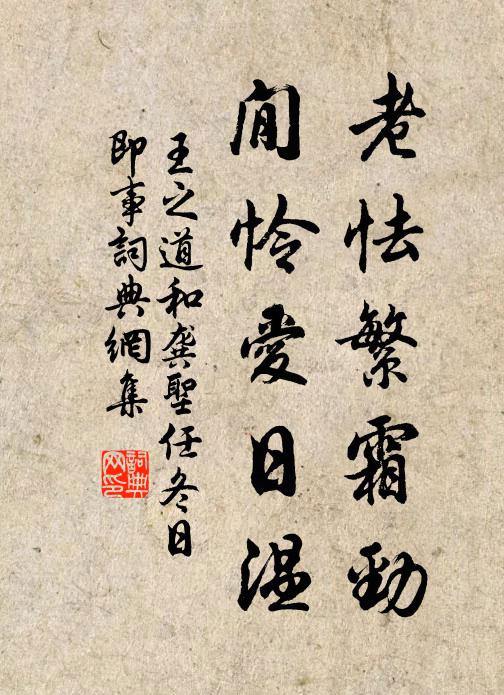 老怯繁霜勁
閒怜愛日温
王之道和龚聖任冬日
即事詞典網集
詞典
网印